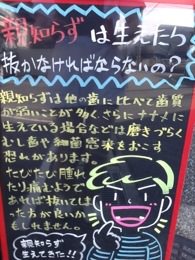 親知らずは生えたら
抜かなければならないの?
親知らずは他の歯に比べて歯質
が弱いことが多く、さらにナナメに
生えている場合などは磨きづらく
むし歯や細菌感染をおこす
恐れがあります。
たびたび腫れ
たり痛むようで
あれば抜いてしま
った方が良いかも
しれません。
親知らず
生えてきた!!